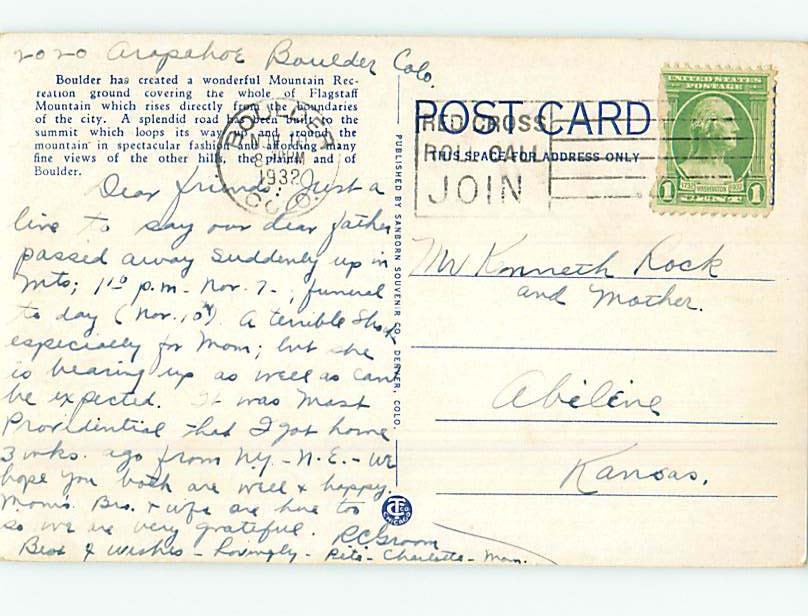 2020 Arapahoe Boulder Colo.
Boulder has created a wonderful Mountain Rec-
reation ground covering the whole of Flagstaff
Mountain which rises directly from the boundaries
of the city. A splendid road has been built to the
summit which loops its way up and around the
mountain in spectacular fashion and affording many
fine views of the other hills, the plains and of
Boulder.
Dear friends, Just a
line to say our dear father
passed away suddenly up in
mts; 1 10 p.m. Nov. 7. ; funeral
to day (Nov. 10th) A terrible shock
especially for Mom; but she
is bearing up as well as can
be expected. It was most
Providential that I got home
3 wks. ago from N.Y. - N.E. - We
hope you both are well & happy.
Mom's Bro. & wife are here too
so we are very grateful. RCGroom
Best wishes - Lovingly - Rita - Charlotte - Mom.
PUBLISHED BY SANBORN SOUVENIR CO. DENVER, COLO.
CT CHICAGO
BOULDER
NOV
1932
COLO.
POST CARD
THIS SPACE FOR ADDRESS ONLY
RED CROSS
ROLL CALL
JOIN
UNITED STATES
POSTAGE
1732 WASHINGTON 1932
1 CENT 1
Mr Kenneth Rock
and Mother.
Abilene
Kansas.